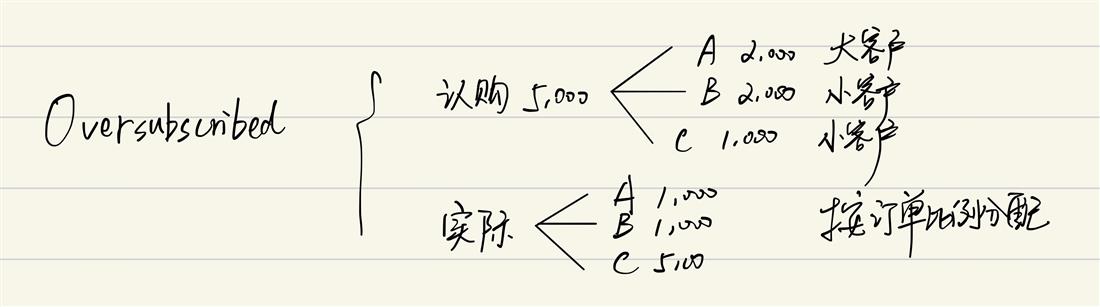 Oversubscribed
认购 5,000
A 2,000 大客户
B 2,000 小客户
C 1,000 小客户
实际
A 1,000
B 1,000
C 5,00
按订单比例分配